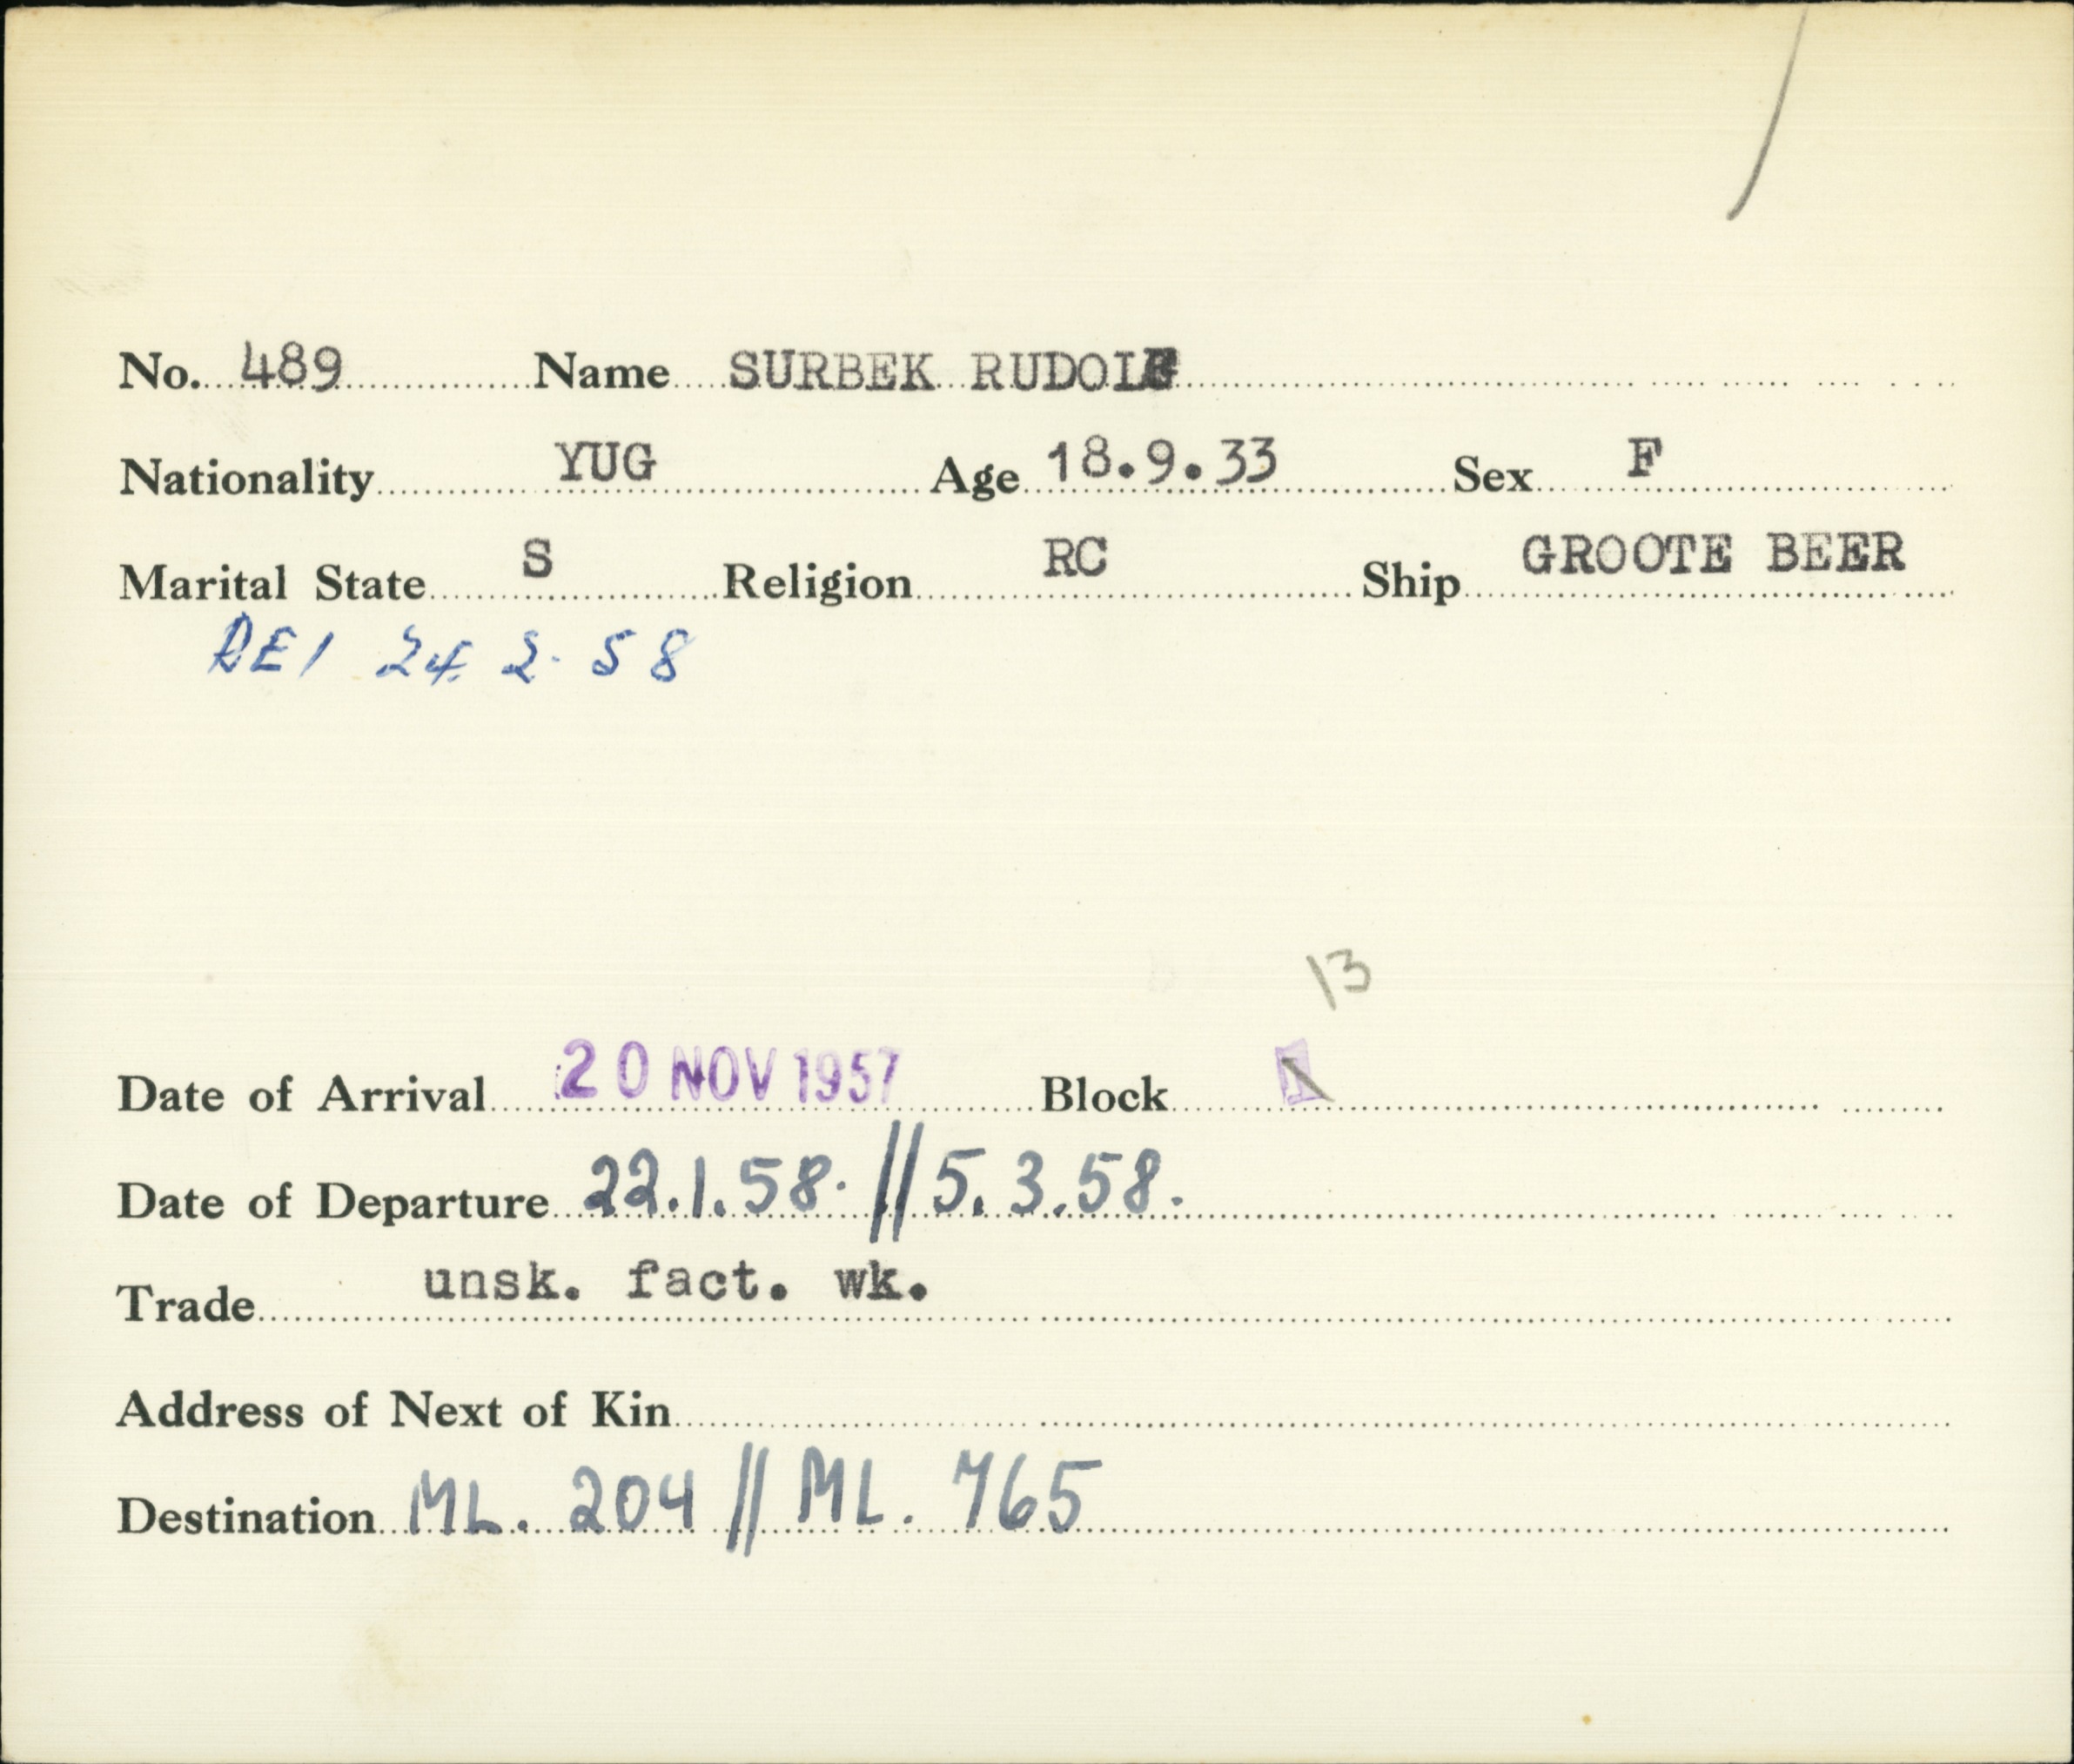 No. 489 Name SURBEK RUDOLF
Nationality YUG Age 18.9.33 Sex F
Marital State S Religion RC Ship GROOTE BEER
24. 2. 58
13
Date of Arrival 20 NOV 1957 Block 1
Date of Departure 22.1.58. // 5.3.58.
Trade unsk. fact. wk.
Address of Next of Kin
Destination ML. 204 // ML. 765